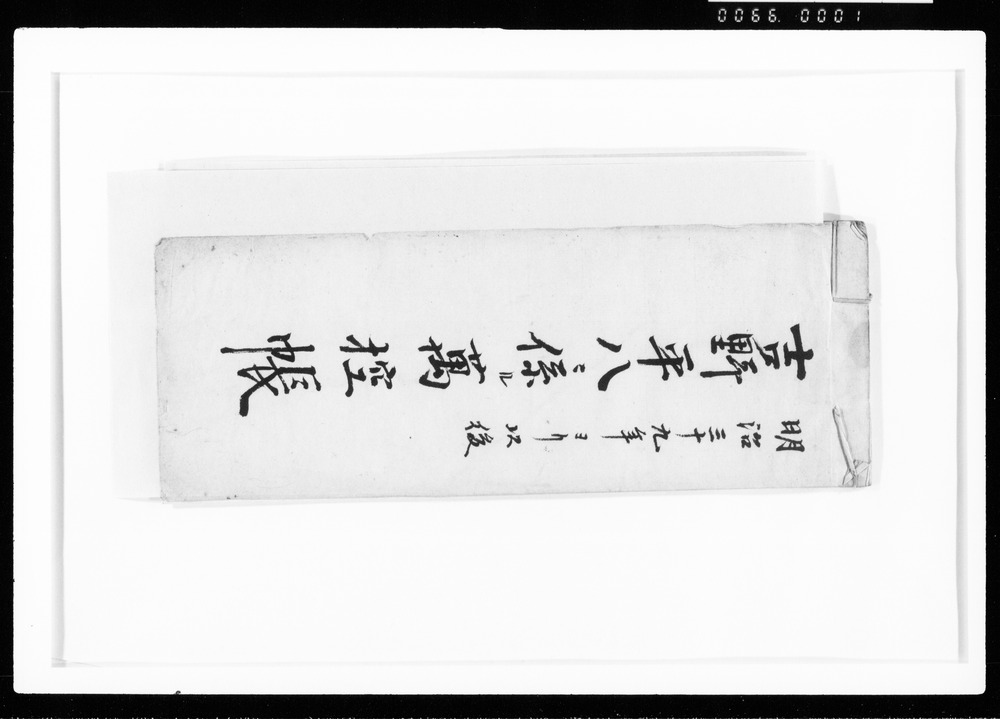 0066.0001
明治三十九年ヨリ以後
吉野平八ニ係ル萬控帳